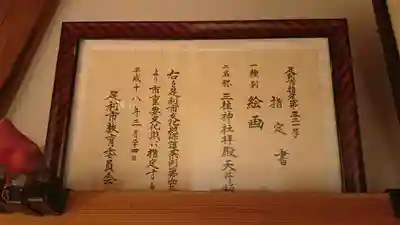 指定書
一種別 絵画
二名称 三柱神社拝殿天井
右を足利市文化財保護条例第四
より市重要文化財に指定する
平成十八年三月十四日
足利市教育委員会